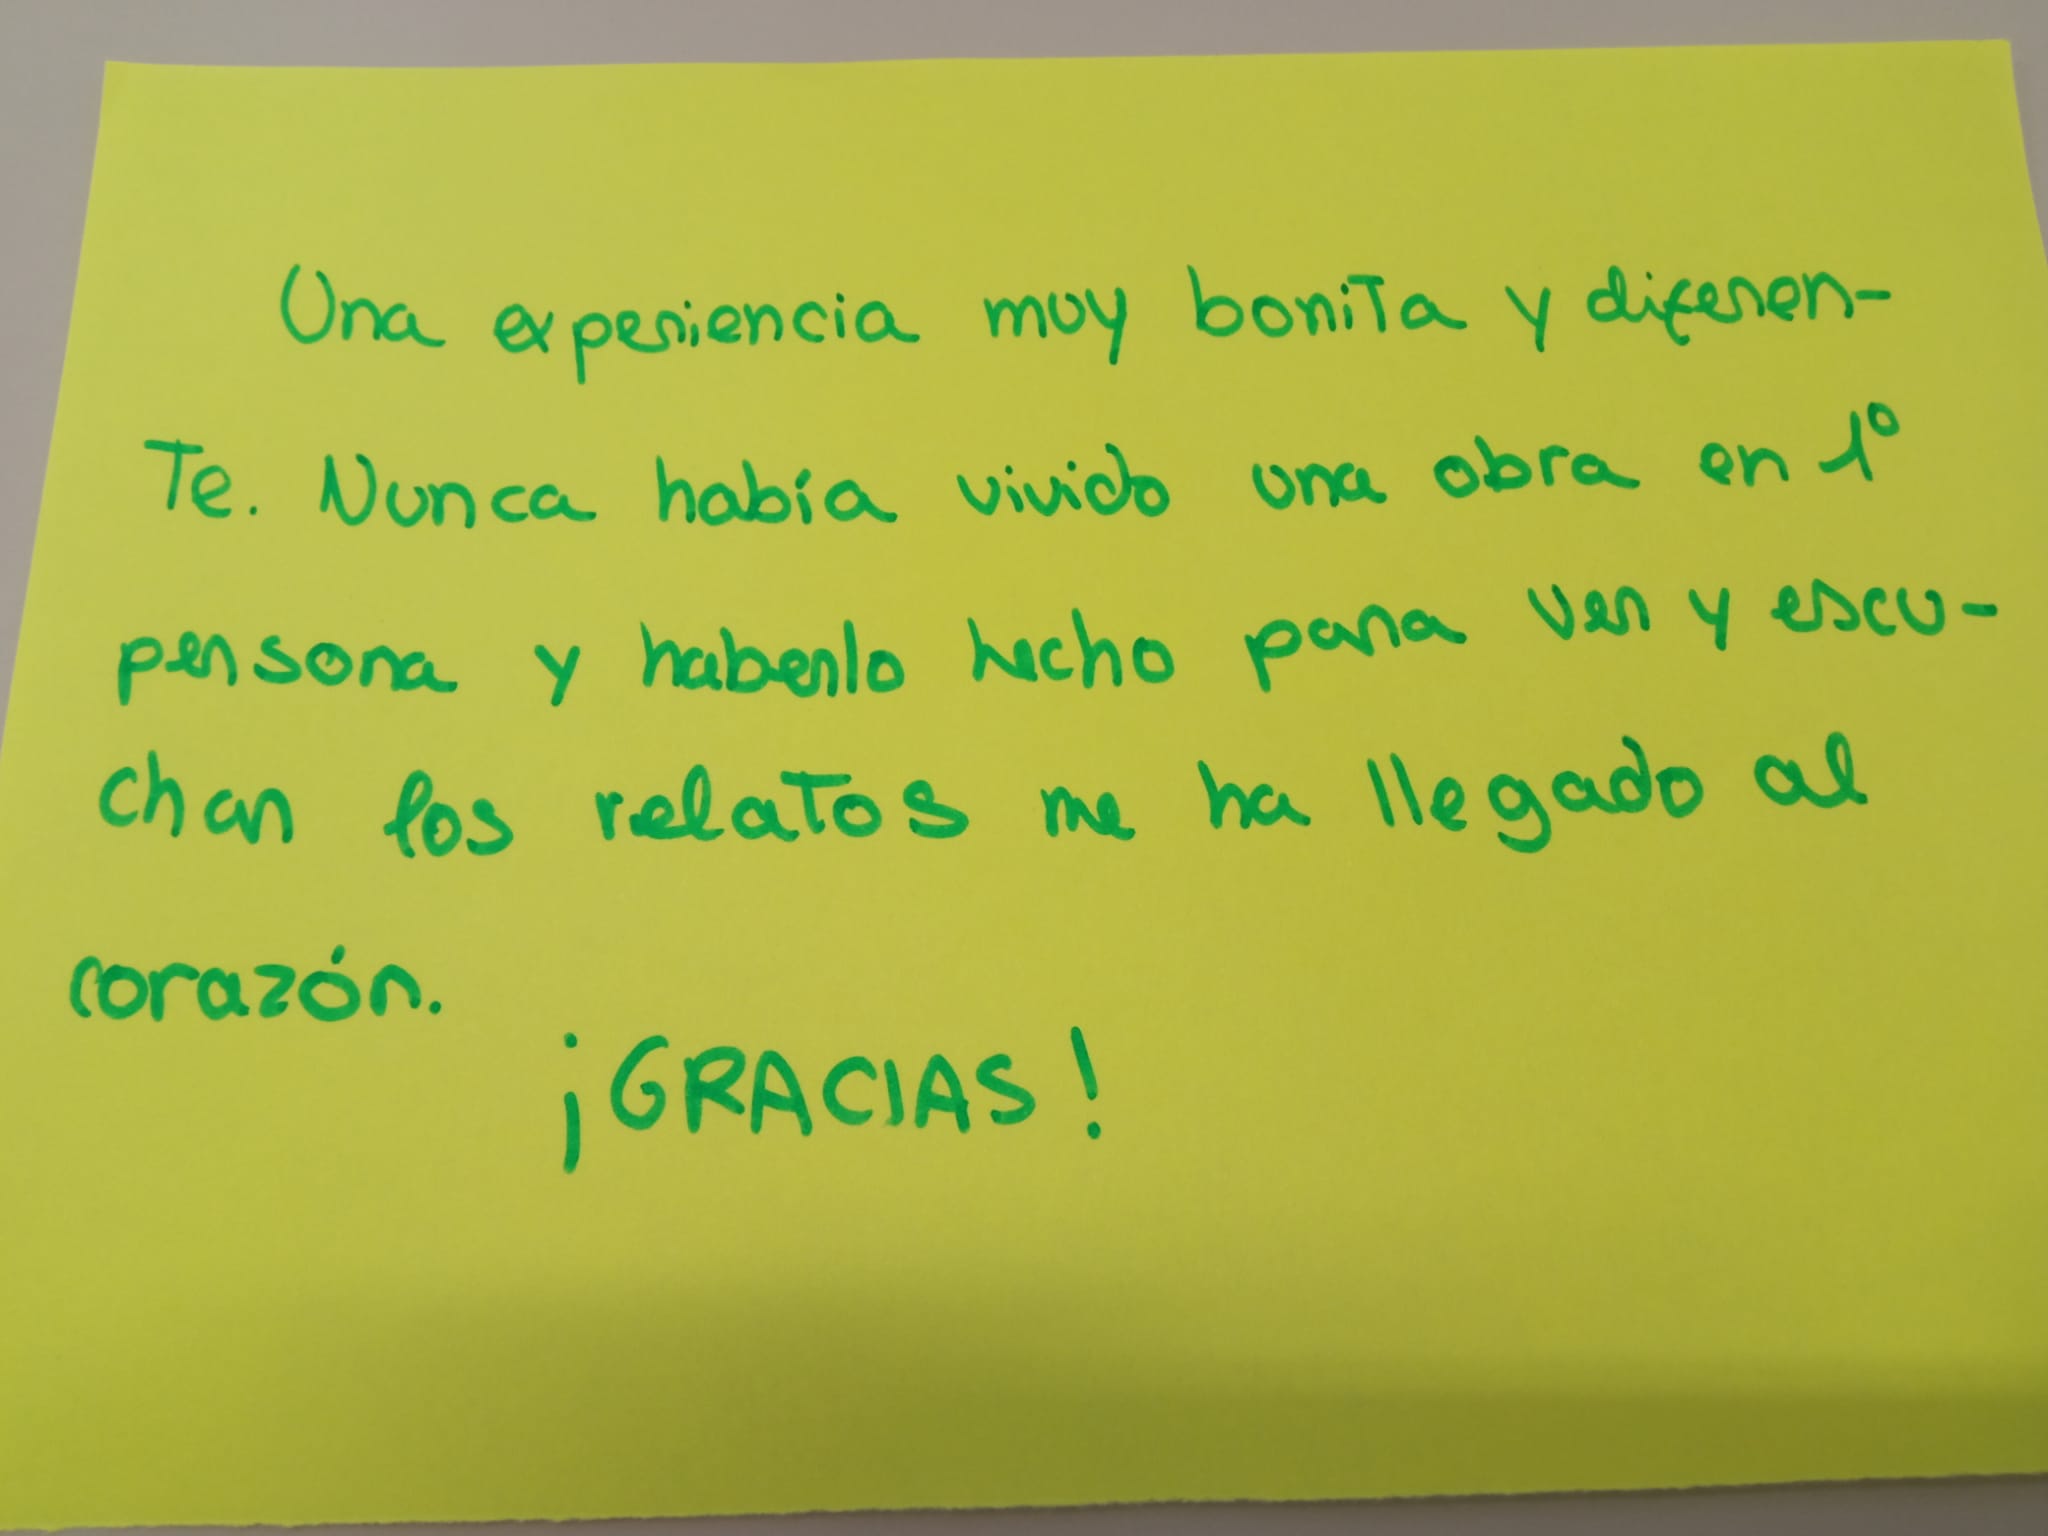 Una experiencia muy bonita y diferen-
te. Nunca había vivido una obra en 1º
persona y haberlo hecho para ver y escu-
char los relatos me ha llegado al
corazón.
¡GRACIAS!